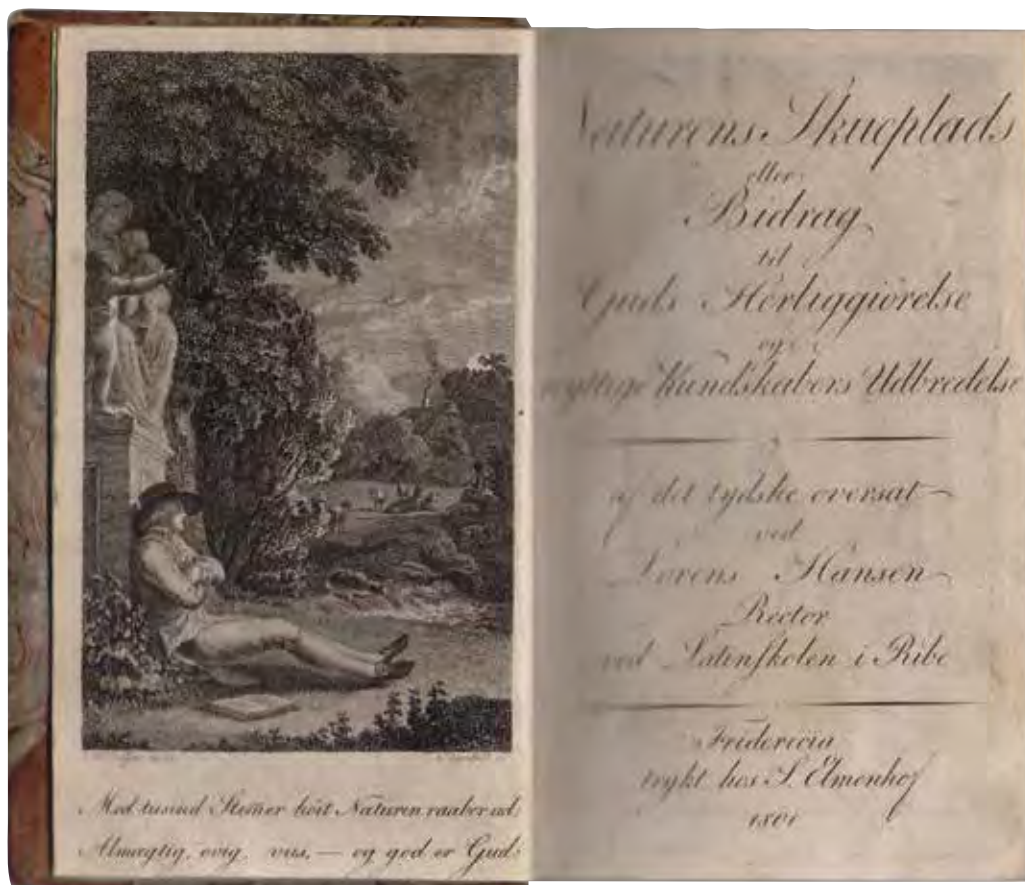 Med tusind Stemer høit Naturen raaber ud:
Almægtig, evig, viis, — og god er Gud.
Naturens Skueplads
eller
Bidrag
til
Guds Herliggiørelse
og
nyttige Kundskabers Udbredelse
af det tydske oversat
ved
Lorens Hansen
Rector
ved Latinskolen i Ribe
Fridericia
trykt hos S. Elmenhof
1801